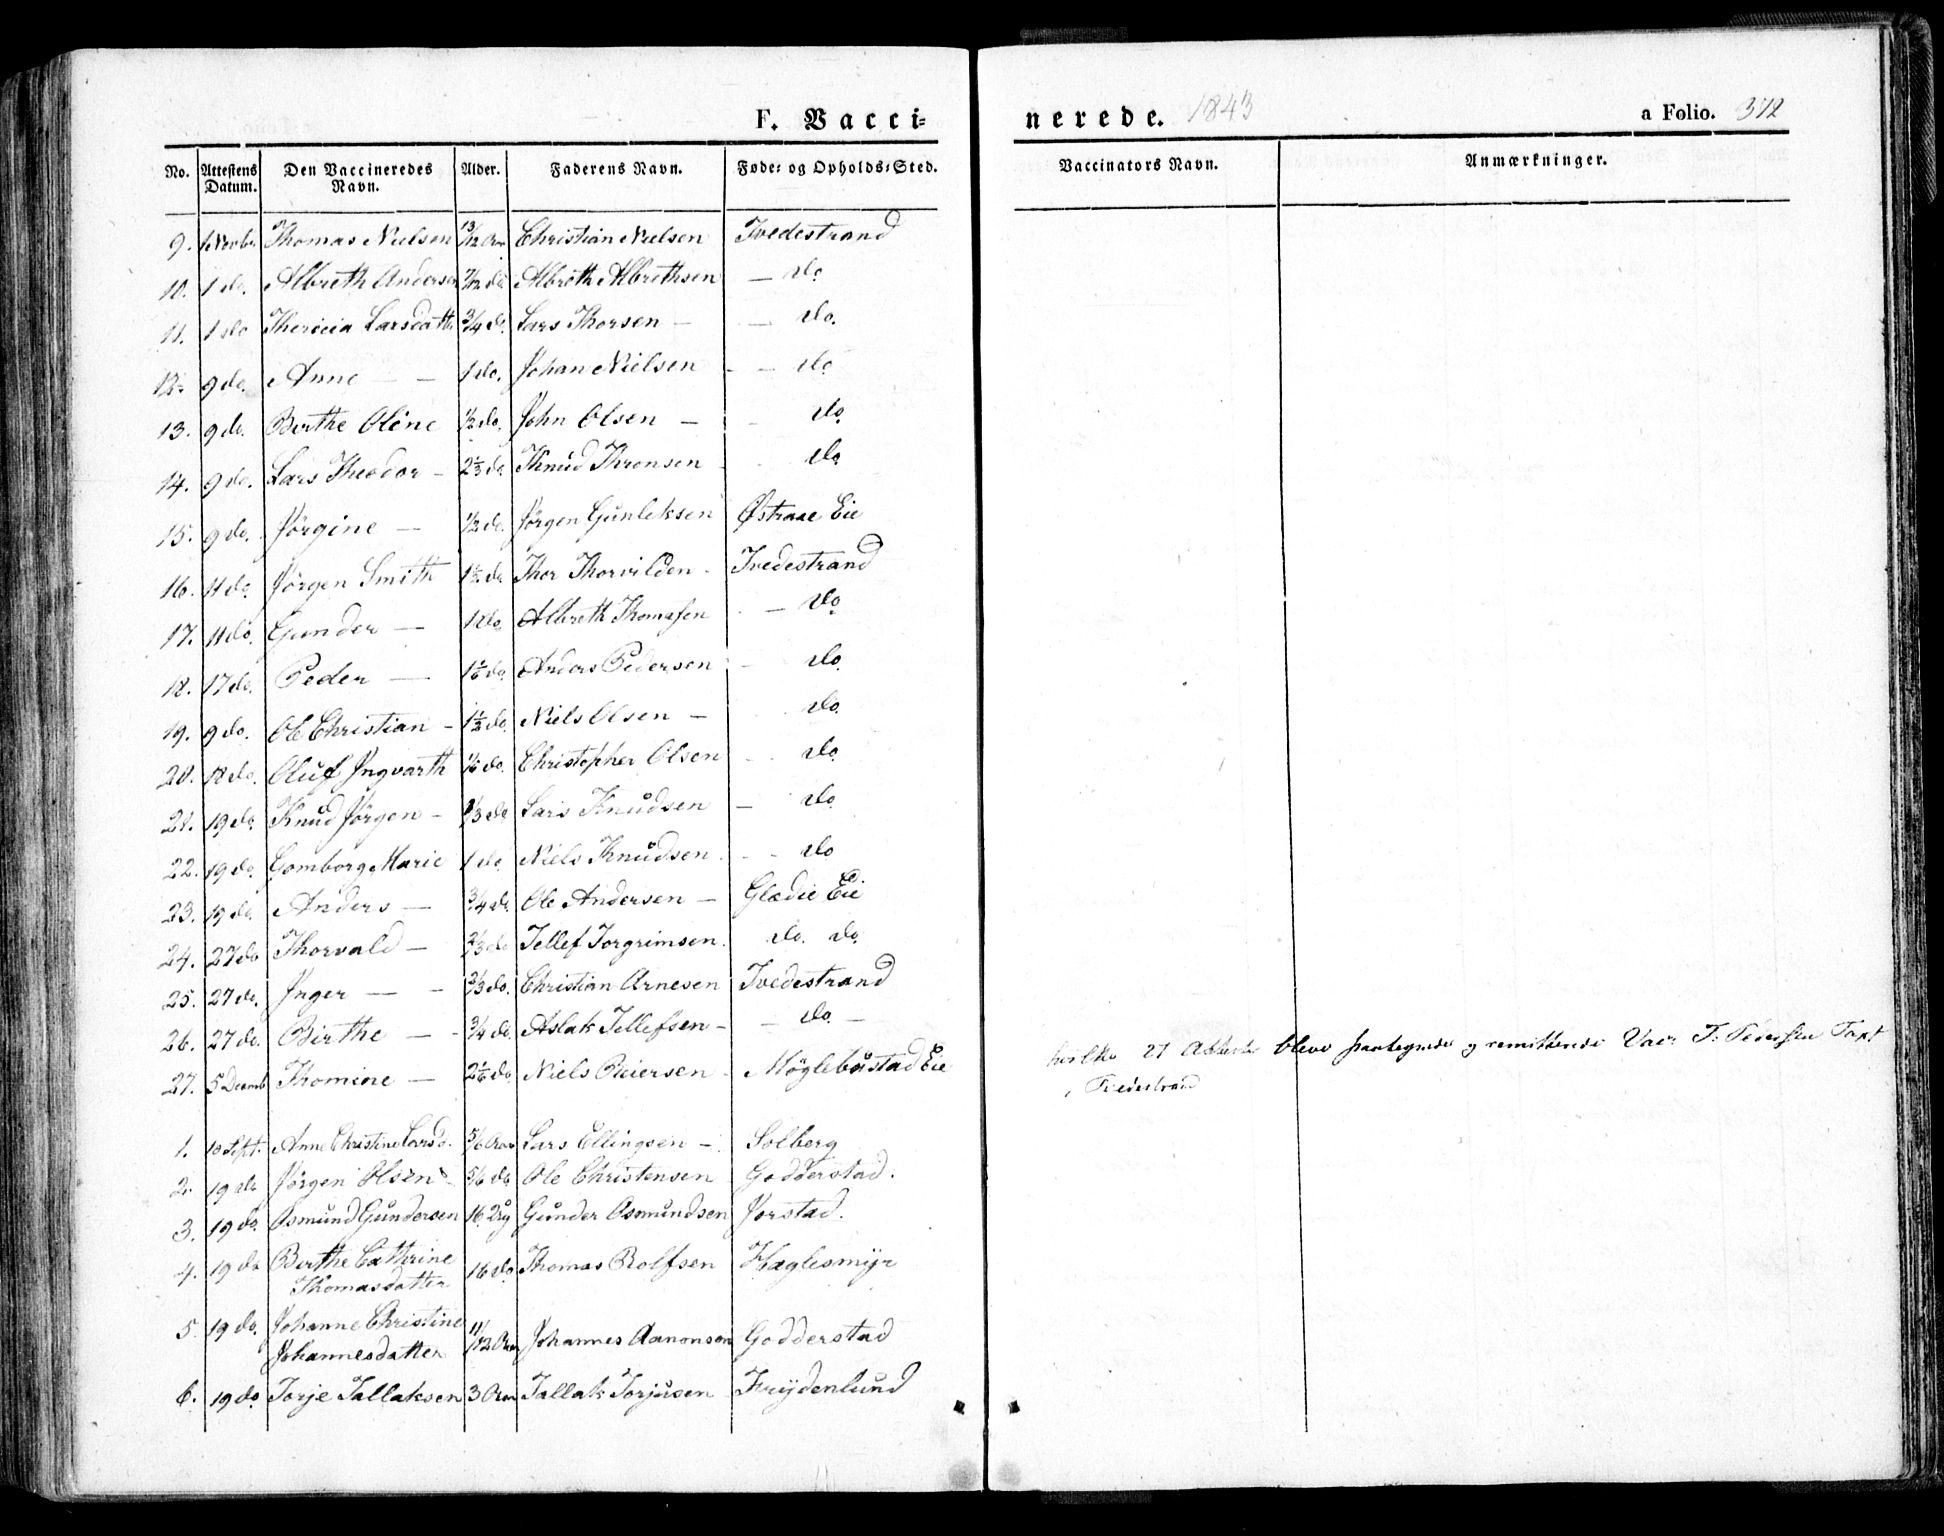 F. Vacci-
nerede. 1843
a Folio. 372
No. Attestens Datum. Den Vaccineredes Navn. Alder. Faderens Navn. Føde- og Opholds-Sted.
Vaccinators Navn. Anmærkninger.
9. 1 Novbr. Thomas Nielsen 13/12 Aar Christian Nielsen Tvedestrand
10. 1 do. Albreth Andersen 7/12 do. Albreth Albrethsen — do
11. 1 do Thericia Larsdatter 3/4 do. Lars Thorsen — — do.
12. 9 do. Anne — — 1 do. Johan Nielsen - — do
13. 9 do. Birthe Oline 1/2 do. John Olsen — - do
14. 9 do. Lars Theodor - 2 1/3 do Knud Thronsen do
15. 9 do. Jørgine — 1/2 do. Jørgen Gunleksen Østraae Eie
16. 11 do. Jørgen Smith 1 1/2 do Thor Thorvilden - Tvedestrand
17. 11 do. Gunder — 1 do. Albreth Thomasen - — do
18. 17 do. Peder — 1 1/6 do. Anders Pedersen — do.
19. 9 do. Ole Christian - 1 1/2 do. Niels Olsen — do.
20. 18 do. Oluf Yngvarth 1/6 do. Christopher Olsen - do.
21. 19 do. Knud Jørgen - 1/3 do Lars Knudsen — do.
22. 19 do. Gomborg Marie 1 do Niels Knudsen. - - do
23. 19 do. Anders — 3/4 do. Ole Andersen — Glædie Eie
24. 27 do Thorvald — 2/3 do Tellef Torgrimsen. do. do.
25. 27 do. Inger — - 2/3 do. Christian Arnesen Tvedestrand
26. 27 do. Birthe — - 3/4 do. Aslak Tellefsen - — do. —
27. 5 Decemb Thomine — 2 1/6 do. Niels Peiersen - Møglebustad Eie
hvilke 27 Attester bleve paategnede og remitterede Vac: T. Pedersen
Tvedestrand
1. 10 Sept. Anne Christine Larsd. 5/6 Aar Lars Ellingsen — Solberg
2. 19 do Jørgen Olsen - 5/6 do. Ole Christensen Godderstad.
3. 19 do. Osmund Gundersen 16 Ug Gunder Osmundsen Jorstad.
4. 19 do Birthe Cathrine
Thomasdatter 16 do. Thomas Rolfsen Haglesmyr
5. 19 do. Johanne Christine
Johannesdatter 11/12 Aar Johannes Aanonsen Godderstad
6. 19 do Torje Tallaksen 3 Aar Tallak Torjusen Frydenlund